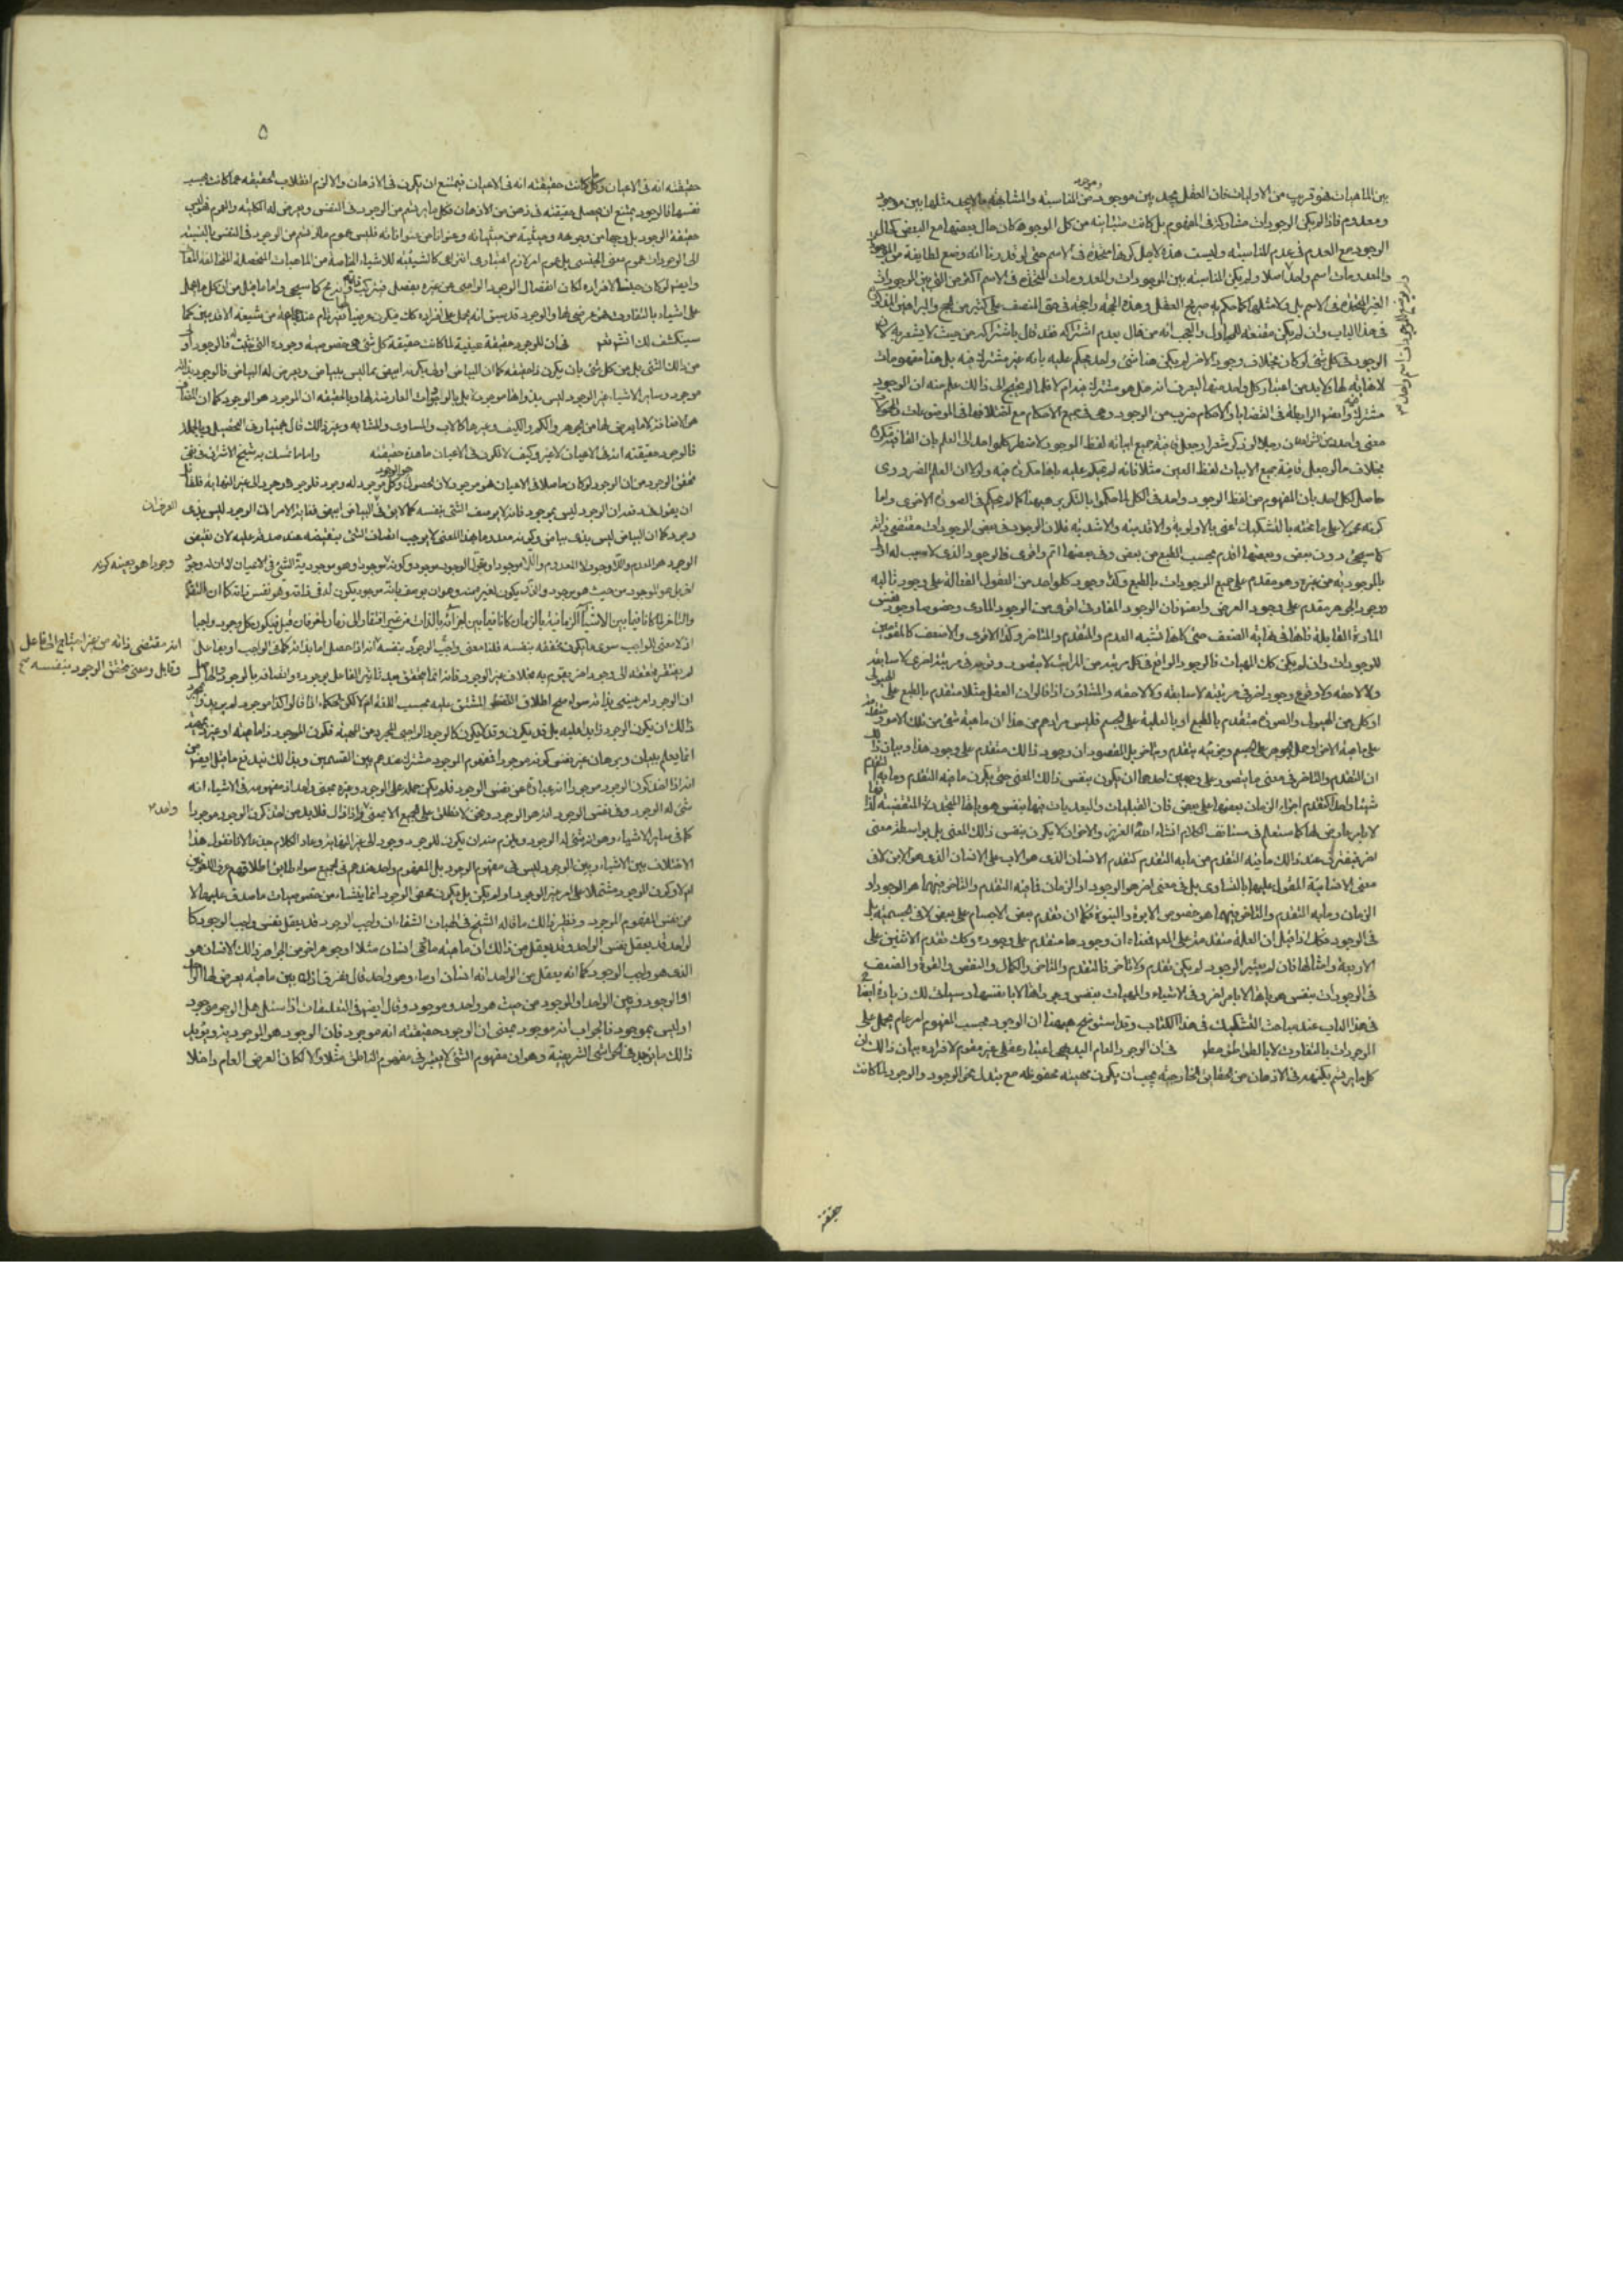 بين الماهيات فهو قريب من الاوليات فان العقل يجد بين موجود وموجود من المناسبة والمشابهة ما لا يجد مثلها بين موجود
ومعدوم فاذا لم يكن الوجودات متشاركة فى المفهوم بل كانت متباينة من كل الوجوه كان حال بعضها مع البعض كحال
الوجود مع العدم فى عدم المناسبة وليست هذه لاجل كونها متحدة فى الاسم حتى لو قدرنا انه وضع لطايفة من الموجودات
والمعدومات اسم واحد اصلا ولم يكن المناسبة بين الموجودات والمعدومات المتحدة فى الاسم اكثر من التى بين الموجودات
الغير المتحدة فى الاسم بل ولا مثلها كما حكم به صريح العقل وهذه الحجة راجحة فى حق المنصف على كثير من الحجج والبراهين
فى هذا الباب وان لم يكن مقنعة للمجادل والعجب انه من قال بعدم اشتراكه فقد قال باشتراكه من حيث لا يشعر به لان
الوجود فى كل شئ لو كان بخلاف وجود الاخر لم يكن هنا شئ واحد يحكم عليه بانه غير مشترك فيه بل هنا مفهومات
لا نهاية لها ولا بد من اعتبار كل واحد منها ليعرف انه هل هو مشترك فيه ام لا فلما لم يحتج الى ذالك علم منه ان الوجود
مشترك وايضا الرابطة فى القضايا والاحكام ضرب من الوجود وهى فى جميع الاحكام مع اختلافها فى الموضوعات والمحمولات
معنى واحد ومن الشواهد ان رجلا لو ذكر شعرا وجعل قافية جميع ابياته لفظ الوجود لاضطر كل واحد الى العلم بان القافية مكررة
بخلاف ما لو جعل قافية جميع الابيات لفظ العين مثلا فانه لم يحكم عليه بانها مكررة فيه ولولا ان العلم الضرورى
حاصل لكل احد بان المفهوم من لفظ الوجود واحد فى الكل لما حكموا بالتكرير ههنا كما لم يحكم فى الصورة الاخرى واما
كونه محمولا على ما تحته بالتشكيك اعنى بالاولوية والاقدمية والاشدية فلان الوجود فى بعض الموجودات مقتضى ذاته
كما سيجئ دون بعض وفى بعضها اقدم بحسب الطبع من بعض وفى بعضها اتم واقوى فالوجود الذى لا سبب له اولى
بالموجودية من غيره وهو متقدم على جميع الموجودات بالطبع وكذا وجود كل واحد من العقول الفعالة على وجود تاليه
ووجود الجوهر متقدم على وجود العرض وايضا فان الوجود المفارقى اقوى من الوجود المادى وخصوصا وجود نفس
المادة القابلة فانها فى غاية الضعف حتى كانها تشبه العدم والمتقدم والمتاخر وكذا الاقوى والاضعف كالمقومين
للوجودات وان لم يكن كك للمهيات فالوجود الواقع فى كل مرتبة من المراتب لا يتصور وقوعه فى مرتبة اخرى لا سابقة
ولا لاحقة ولا وقوع وجود اخر فى مرتبته لا سابقة ولا لاحقة والمشاؤن اذا قالوا ان العقل مثلا متقدم بالطبع على الهيولى
او كل من الهيولى والصورة متقدم بالطبع او بالعلية على الجسم فليس مرادهم من هذا ان ماهية شئ من تلك الامور متقدمة
على ماهية الاخر وحمل الجوهر على الجسم وجزئيه بتقدم وتاخر بل المقصود ان وجود ذالك متقدم على وجود هذا وبيان ذلك
ان التقدم والتاخر فى معنى ما يتصور على وجهين احدهما ان يكون بنفس ذالك المعنى حتى يكون ما فيه التقدم وما به التقدم
شيئا واحدا كتقدم اجزاء الزمان بعضها على بعض فان القبليات والبعديات فيها بنفس هوياتها المتجددة المتقضية لذاتها
لا بامر عارض لها كما ستعلم فى مستانف الكلام انشاء الله العزيز والاخر ان لا يكون بنفس ذالك المعنى بل بواسطة معنى
اخر فيفترق عند ذالك ما فيه التقدم عن ما به التقدم كتقدم الانسان الذى هو الاب على الانسان الذى هو الابن لا فى
معنى الانسانية المقول عليهما بالتساوى بل فى معنى اخر هو الوجود او الزمان فما فيه التقدم والتاخر فيهما هو الوجود او
الزمان وما به التقدم والتاخر فيهما هو خصوص الابوة والبنوة فكما ان تقدم بعض الاجسام على بعض لا فى الجسمية بل
فى الوجود فكذا اذا قيل ان العلة متقدمة على المعلول فمعناه ان وجودها متقدم على وجوده وكك تقدم الاثنين على
الاربعة وامثالها فان لم يعتبر الوجود لم يكن تقدم ولا تاخر فالتقدم والتاخر والكمال والنقص والقوة والضعف
فى الوجودات بنفس هوياتها لا بامر اخر وفى الاشياء والمهيات بنفس وجوداتها لا بانفسها وسياتى لك زيادة ايضاح
فى هذا الباب عند مباحث التشكيك فى هذا الكتاب وقد استوضح ههنا ان الوجود بحسب المفهوم امر عام يحمل على
الوجودات بالتفاوت لا بالتواطؤ مطلقا فى ان الوجود العام البديهى اعتبار عقلى غير مقوم لافراده بيان ذالك ان
كل ما يرتسم بكنهه فى الاذهان من الحقايق الخارجية يجب ان يكون مهيته محفوظة مع تبدل نحو الوجود والوجود لما كانت
حقيقته
۵
حقيقته انه فى الاعيان وكل ما كانت حقيقته انه فى الاعيان فيمتنع ان يكون فى الاذهان والا لزم انقلاب الحقيقة عما كانت بحسب
نفسها فالوجود يمتنع ان يحصل حقيقته فى ذهن من الاذهان فكل ما يرتسم من الوجود فى النفس ويعرض له الكلية والعموم فهو ليس
حقيقة الوجود بل وجها من وجوهه وحيثية من حيثياته وعنوانا من عنواناته فليس عموم ما ارتسم من الوجود فى النفس بالنسبة
الى الوجودات عموم معنى الجنسى بل عموم امر لازم اعتبارى انتزاعى كالشيئية للاشياء الخاصة من الماهيات المتحصلة المتخالفة المعانى
وايضا لو كان جنسا لافراده لكان انفصال الوجود الواجبى عن غيره بفصل فيتركب ذاته وانه مح كما سيجئ واما ما قيل من ان كل ما يحمل
على اشياء بالتفاوت فهو عرضى لها والوجود قد سبق انه يحمل على افراده كك فيكون عرضيا لها فغير تام عند جماعة من شيعة الاقدمين كما
سينكشف لك انشاء الله فى ان للوجود حقيقة عينية لما كانت حقيقة كل شئ هى خصوصية وجوده التى يثبت له فالوجود اولى
من ذالك الشئ بل من كل شئ بان يكون ذا حقيقة كما ان البياض اولى بكونه ابيض مما ليس ببياض ويعرض له البياض فالوجود بذاته
موجود وساير الاشياء غير الوجود ليس بذواتها موجودة بل بالوجودات العارضة لها وبالحقيقة ان الموجود هو الوجود كما ان المضاف
هو الاضافة لا ما يعرض لها من الجوهر والكم والكيف وغيرها كالاب والمساوى والمشابه وغير ذالك قال بهمنيار فى التحصيل وبالجملة
فالوجود حقيقته انه فى الاعيان لا غير وكيف لا تكون فى الاعيان ما هذه حقيقته واما ما تمسك به شيخ الاشراق فى نفى
تحقق الوجود من ان الوجود لو كان حاصلا فى الاعيان فهو موجود لان الحصول هو الوجود وكل موجود له وجود فلوجوده وجود الى غير النهاية فلقائل
ان يقول فى دفعه ان الوجود ليس بموجود فانه لا يوصف الشئ بنفسه كما لا يق فى العرف ان البياض ابيض فغاية الامر ان الوجود ليس بذى
وجود كما ان البياض ليس بذى بياض وكونه معدوما بهذا المعنى لا يوجب اتصاف الشئ بنقيضه عند صدقه عليه لان نقيض
الوجود هو العدم واللاوجود لا المعدوم واللاموجود او نقول الوجود موجود وكونه وجودا هو بعينه كونه موجودا وهو موجودية الشئ فى الاعيان لا ان له وجودا
اخر بل هو الموجود من حيث هو موجود والذى يكون لغيره منه وهو ان يوصف بانه موجود يكون له فى ذاته وهو نفس ذاته كما ان التقدم
والتاخر لما كانا فيما بين الاشياء الزمانية بالزمان كانا فيما بين اجزائه بالذات من غير افتقار الى زمان اخر فان قيل فيكون كل وجود واجبا
اذ لا معنى للواجب سوى ما يكون تحققه بنفسه قلنا معنى واجب الوجود بنفسه انه مقتضى ذاته من غير احتياج الى فاعل وقابل ومعنى تحقق الوجود بنفسه انه اذا حصل اما بذاته كما فى الواجب او بفاعل
لم يفتقر تحققه الى وجود اخر يقوم به بخلاف غير الوجود فانه انما يتحقق بعد تاثير الفاعل بوجوده واتصافه بالوجود والحاصل
ان الوجود امر عينى بذاته سواء صح اطلاق لفظ المشتق عليه بحسب اللغة ام لا لكن الحكماء اذا قالوا كذا موجود لم يريدوا بمجرد
ذالك ان يكون الوجود زايدا عليه بل قد يكون وقد لا يكون كالوجود الواجبى المجرد عن المهية فكون الموجود ذا ماهية او غير ذى مهية
انما يعلم ببيان وبرهان غير نفس كونه موجودا فمفهوم الموجود مشترك عندهم بين القسمين وبذالك يندفع ما قيل ايضا من
انه اذا اخذ كون الوجود موجودا انه عبارة عن نفس الوجود فلم يكن حمله على الوجود وغيره بمعنى واحد اذ مفهومه فى الاشياء انه
شئ له الوجود وفى نفس الوجود انه هو الوجود ونحن لا نطلق على الجميع الا بمعنى واحد واذ ذاك فلا بد من اخذ كون الوجود موجودا
كما فى ساير الاشياء وهو انه شئ له الوجود ويلزم منه ان يكون للوجود وجود الى غير النهاية وعاد الكلام جذعا لانا نقول هذا
الاختلاف بين الاشياء وبين الوجود ليس فى مفهوم الوجود بل المفهوم واحد عندهم فى الجميع سواء طابق اطلاقهم عرف اللغويين
ام لا وكون الوجود مشتملا على امر غير الوجود او لم يكن بل يكون محض الوجود انما ينشاء من خصوصيات ما صدق عليها لا
من نفس المفهوم الموجود ونظير ذالك ما قاله الشيخ فى الهيات الشفاء ان واجب الوجود قد يعقل نفس واجب الوجود كا
لواحد قد يعقل نفس الواحد وقد يعقل من ذالك ان ماهيته ما هى انسان مثلا او جوهر اخر من الجواهر ذالك الانسان هو
الذى هو واجب الوجود كما انه يعقل من الواحد انه انسان او ماء وهو واحد قال ففرق اذن بين ماهية يعرض لها الواحد
او الوجود وبين الواحد او الموجود من حيث هو واحد وموجود وقال ايضا فى التعليقات اذا سئل هل الوجود موجود
او ليس بموجود فالجواب انه موجود بمعنى ان الوجود حقيقته انه موجود فان الوجود هو الموجودية ويؤيد
ذالك ما يوجد فى الحواشى الشريفية وهو ان مفهوم الشئ لا يعتبر فى مفهوم الناطق مثلا والا لكان العرض العام داخلا